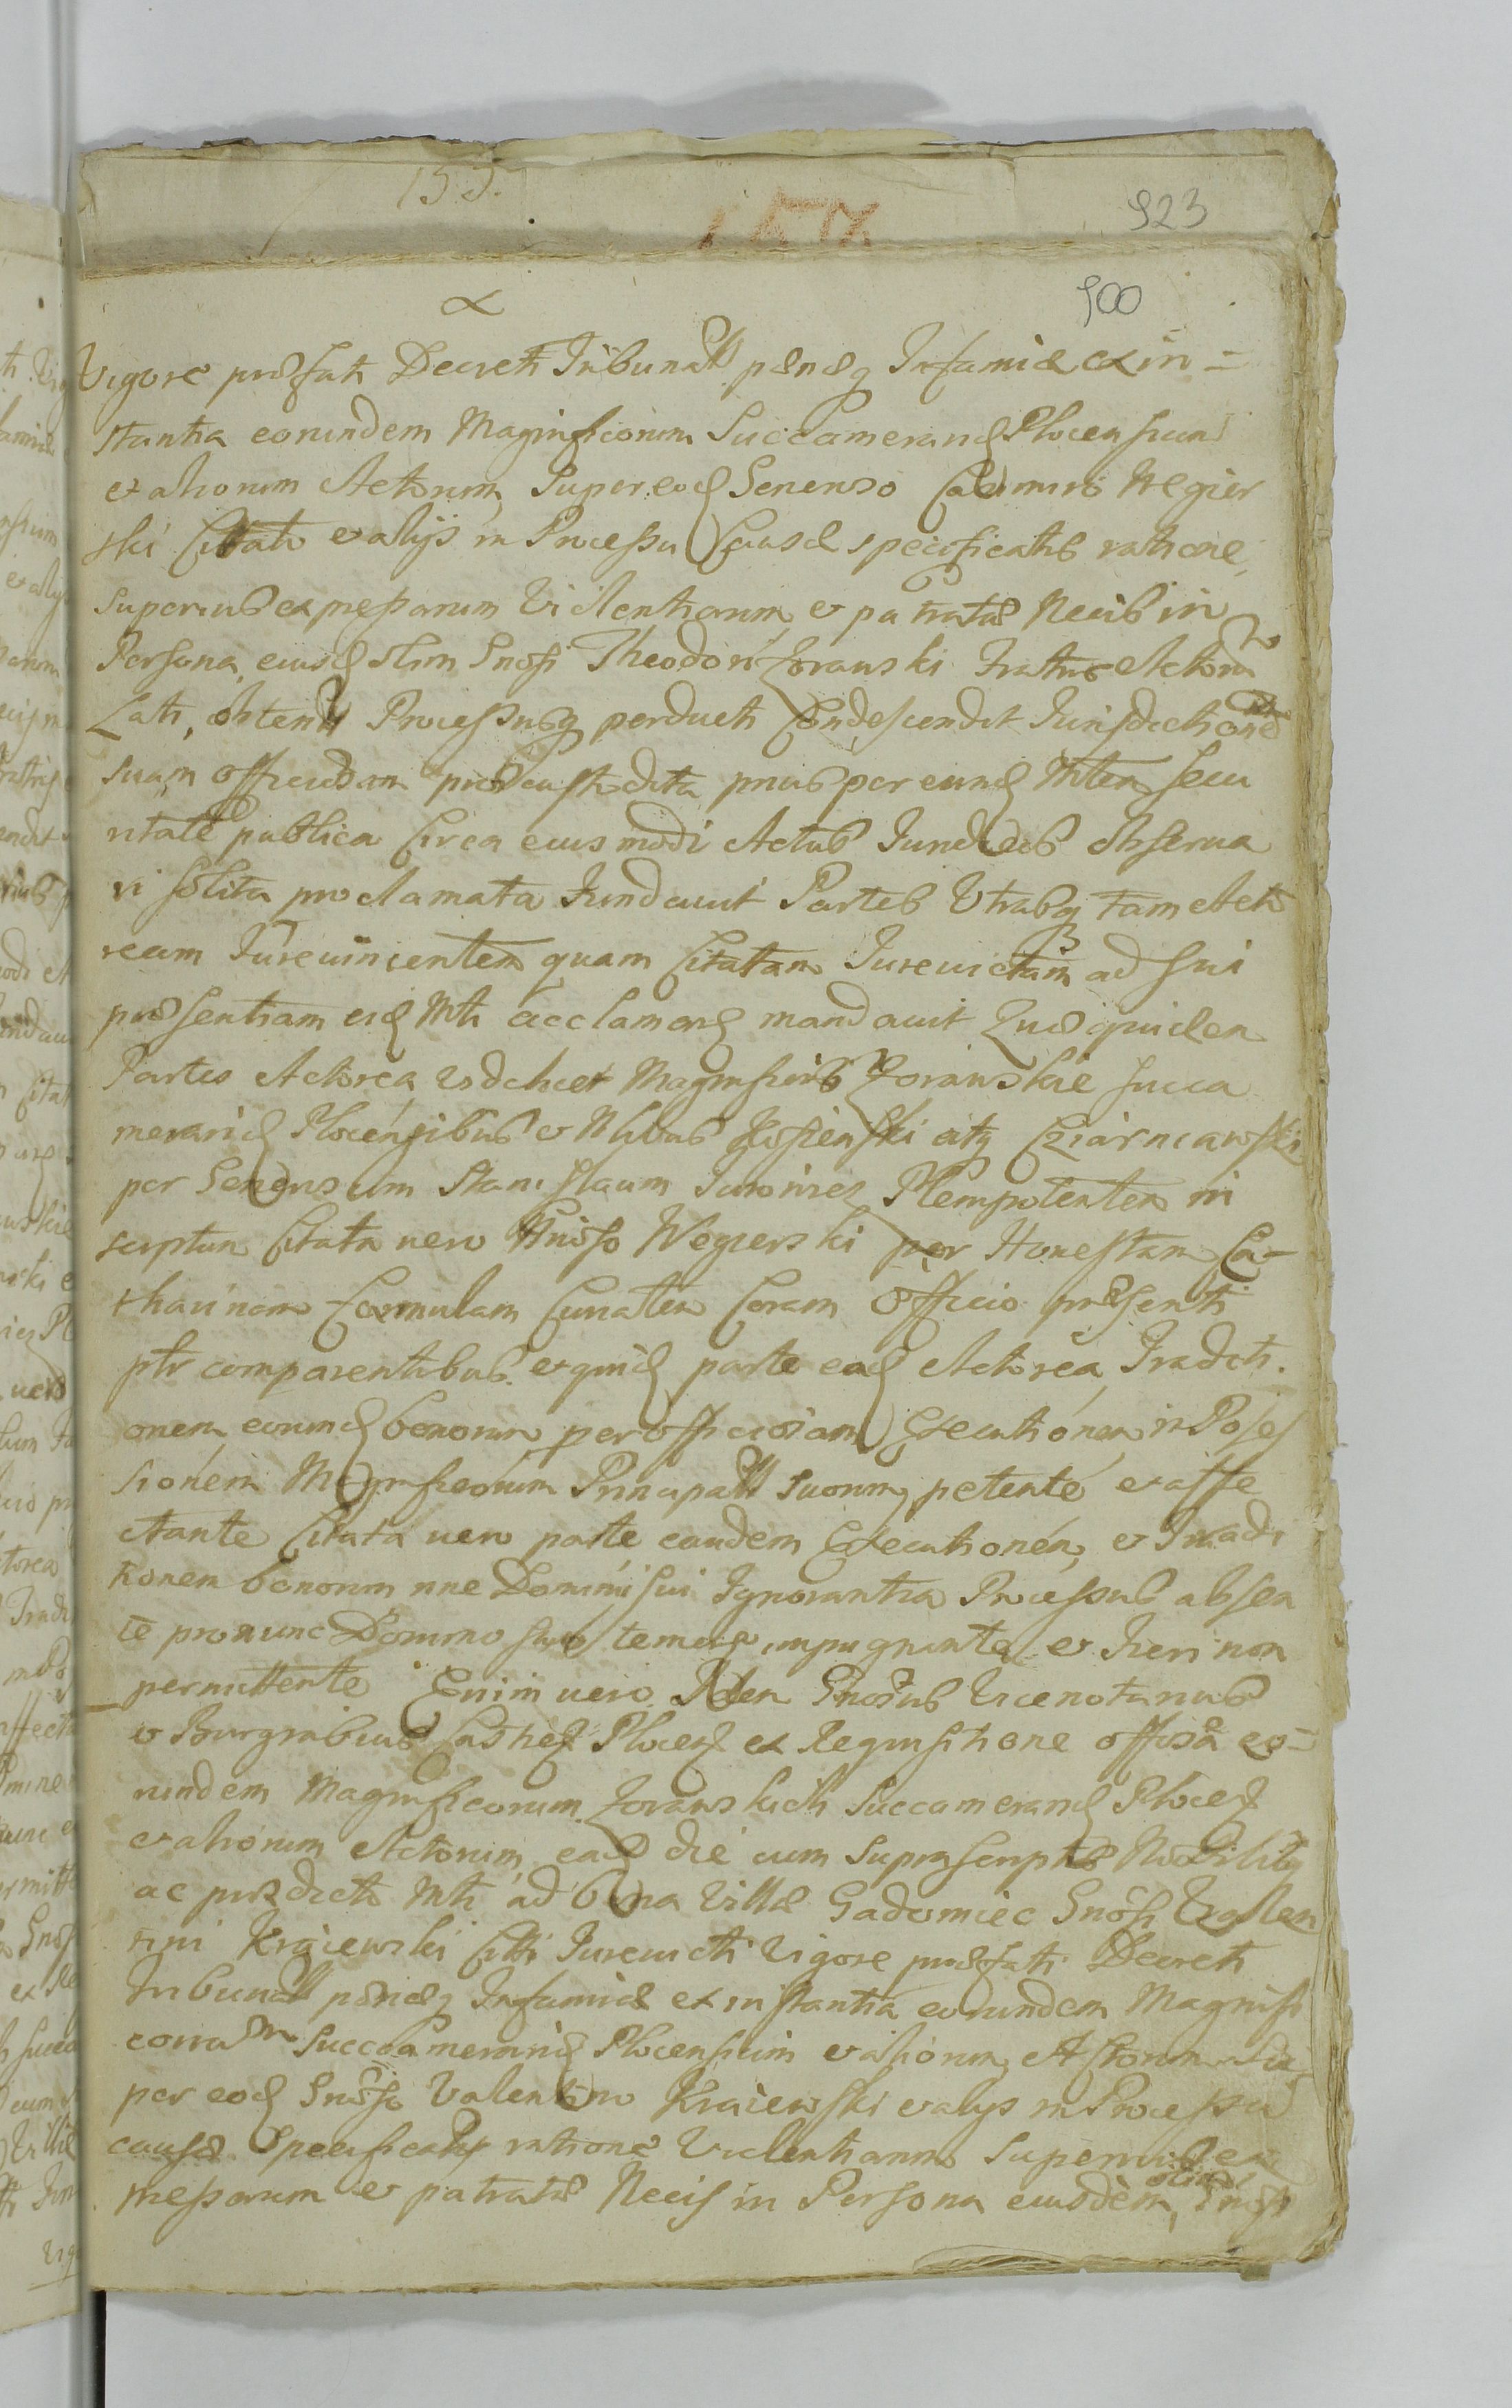 155.
923
500
Vigore præfati Decreti Tribunalis pænæq Infamiæ ex in=
stantia eorundem Magnificorum Succamerarid Plocensium
et aliorum Actorum, Super eod Generoso Casimiro Węgier
ski Citato et alijs in Processu Causæ specificatis ratione
superius expressarum Violentiarum et patratæ Necis in
Persona eiusd olim Gnosi Theodori Zorawski Fratris Actorum
Lati, obtenti Processusq perducti Condescendit Jurisdictione
suam officiosam præcustodita prius per eund Mtem Secu
ritate publica Circa eiusmodi Actus Juridicos Observa
ri solita proclamata Fundavit Partes Utrasq tam Acto
ream Jurevincentem quam Citatam Jurevictam ad sui
præsentiam eid Mti acclamard mandavit Quæquidem
Partes Actorea videlicet Magnificis Zorawskie Succa
merarid Plocensibus et Nlibus Kosienski atq Czarniawski
per Generosum Stanislaum Plenipotentem in
scriptum Citata vero Gnoso Węgierski per Honestam Ca-
tharinam Famulam Curatem Coram Officio præsenti
ptr comparentibus et quid parte ead Actorea Tradit
onem eorund bonorum per officiosam Executionem in Poses
sionem Magnificorum Principalium suorum petente et affe
ctante Citata vero parte eandem Executionem et Tradi
tionem bonorum rone Domini sui Ignorantia Processus absen
te pro nunc Domino suo temere impugnante et fieri non
permittente Enim vero Idem Gnosus Vicenotarius
et Burgrabius Castren Plocen ex Requisitione officiosa eo=
rundem Magnificorum Zorawskich Succamerarid Plocen
et aliorum Actorum ead die cum suprascriptis Nobilibq
ac prædicto Mti ad bona Villæ Gadomiec Gnosi Valen
tini Kraiewski Citti Jurevicti Vigore præfati Decreti
Tribunalis pænæq Infamiæ ex instantia eorundem Magnifi
corum Succamerarid Plocensium et aliorum Actorum Su
per eod Gnoso Valentino Kraiewski et alijs in Processu
causæ Specificatis ratione Violentiarum Superius ex
pressarum et patratæ Necis in Persona eiusdem olim Gnosi